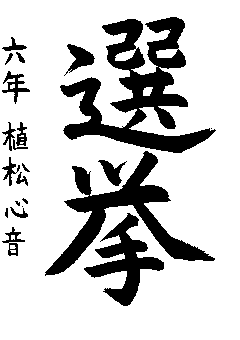 選挙
六年 植松心音